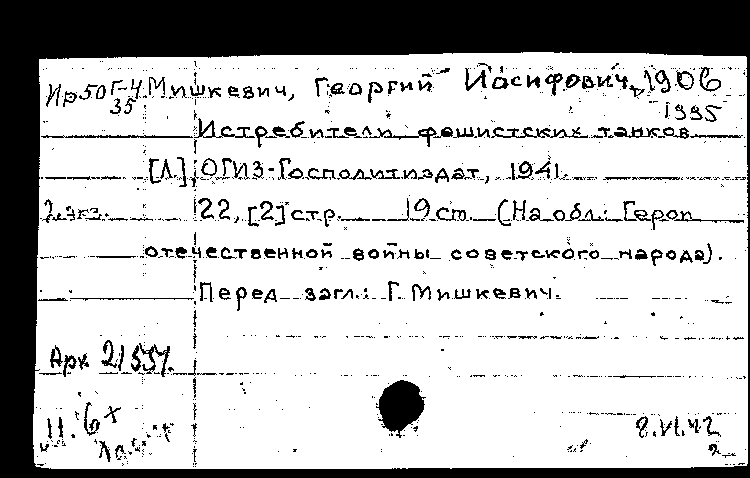 Ир50Г-4 Мишкевич, Георгий Иосифович, 1906
35 1995
Истребители фашистских танков
[Л], ОГИЗ-Госполитиздат, 1941.
2 экз. 22, [2] стр. 19 см. (На обл.: Герои
отечественной войны советского народа).
Перед загл.: Г. Мишкевич.
Арк 21551.
11. 6 +
8.VI.42
2